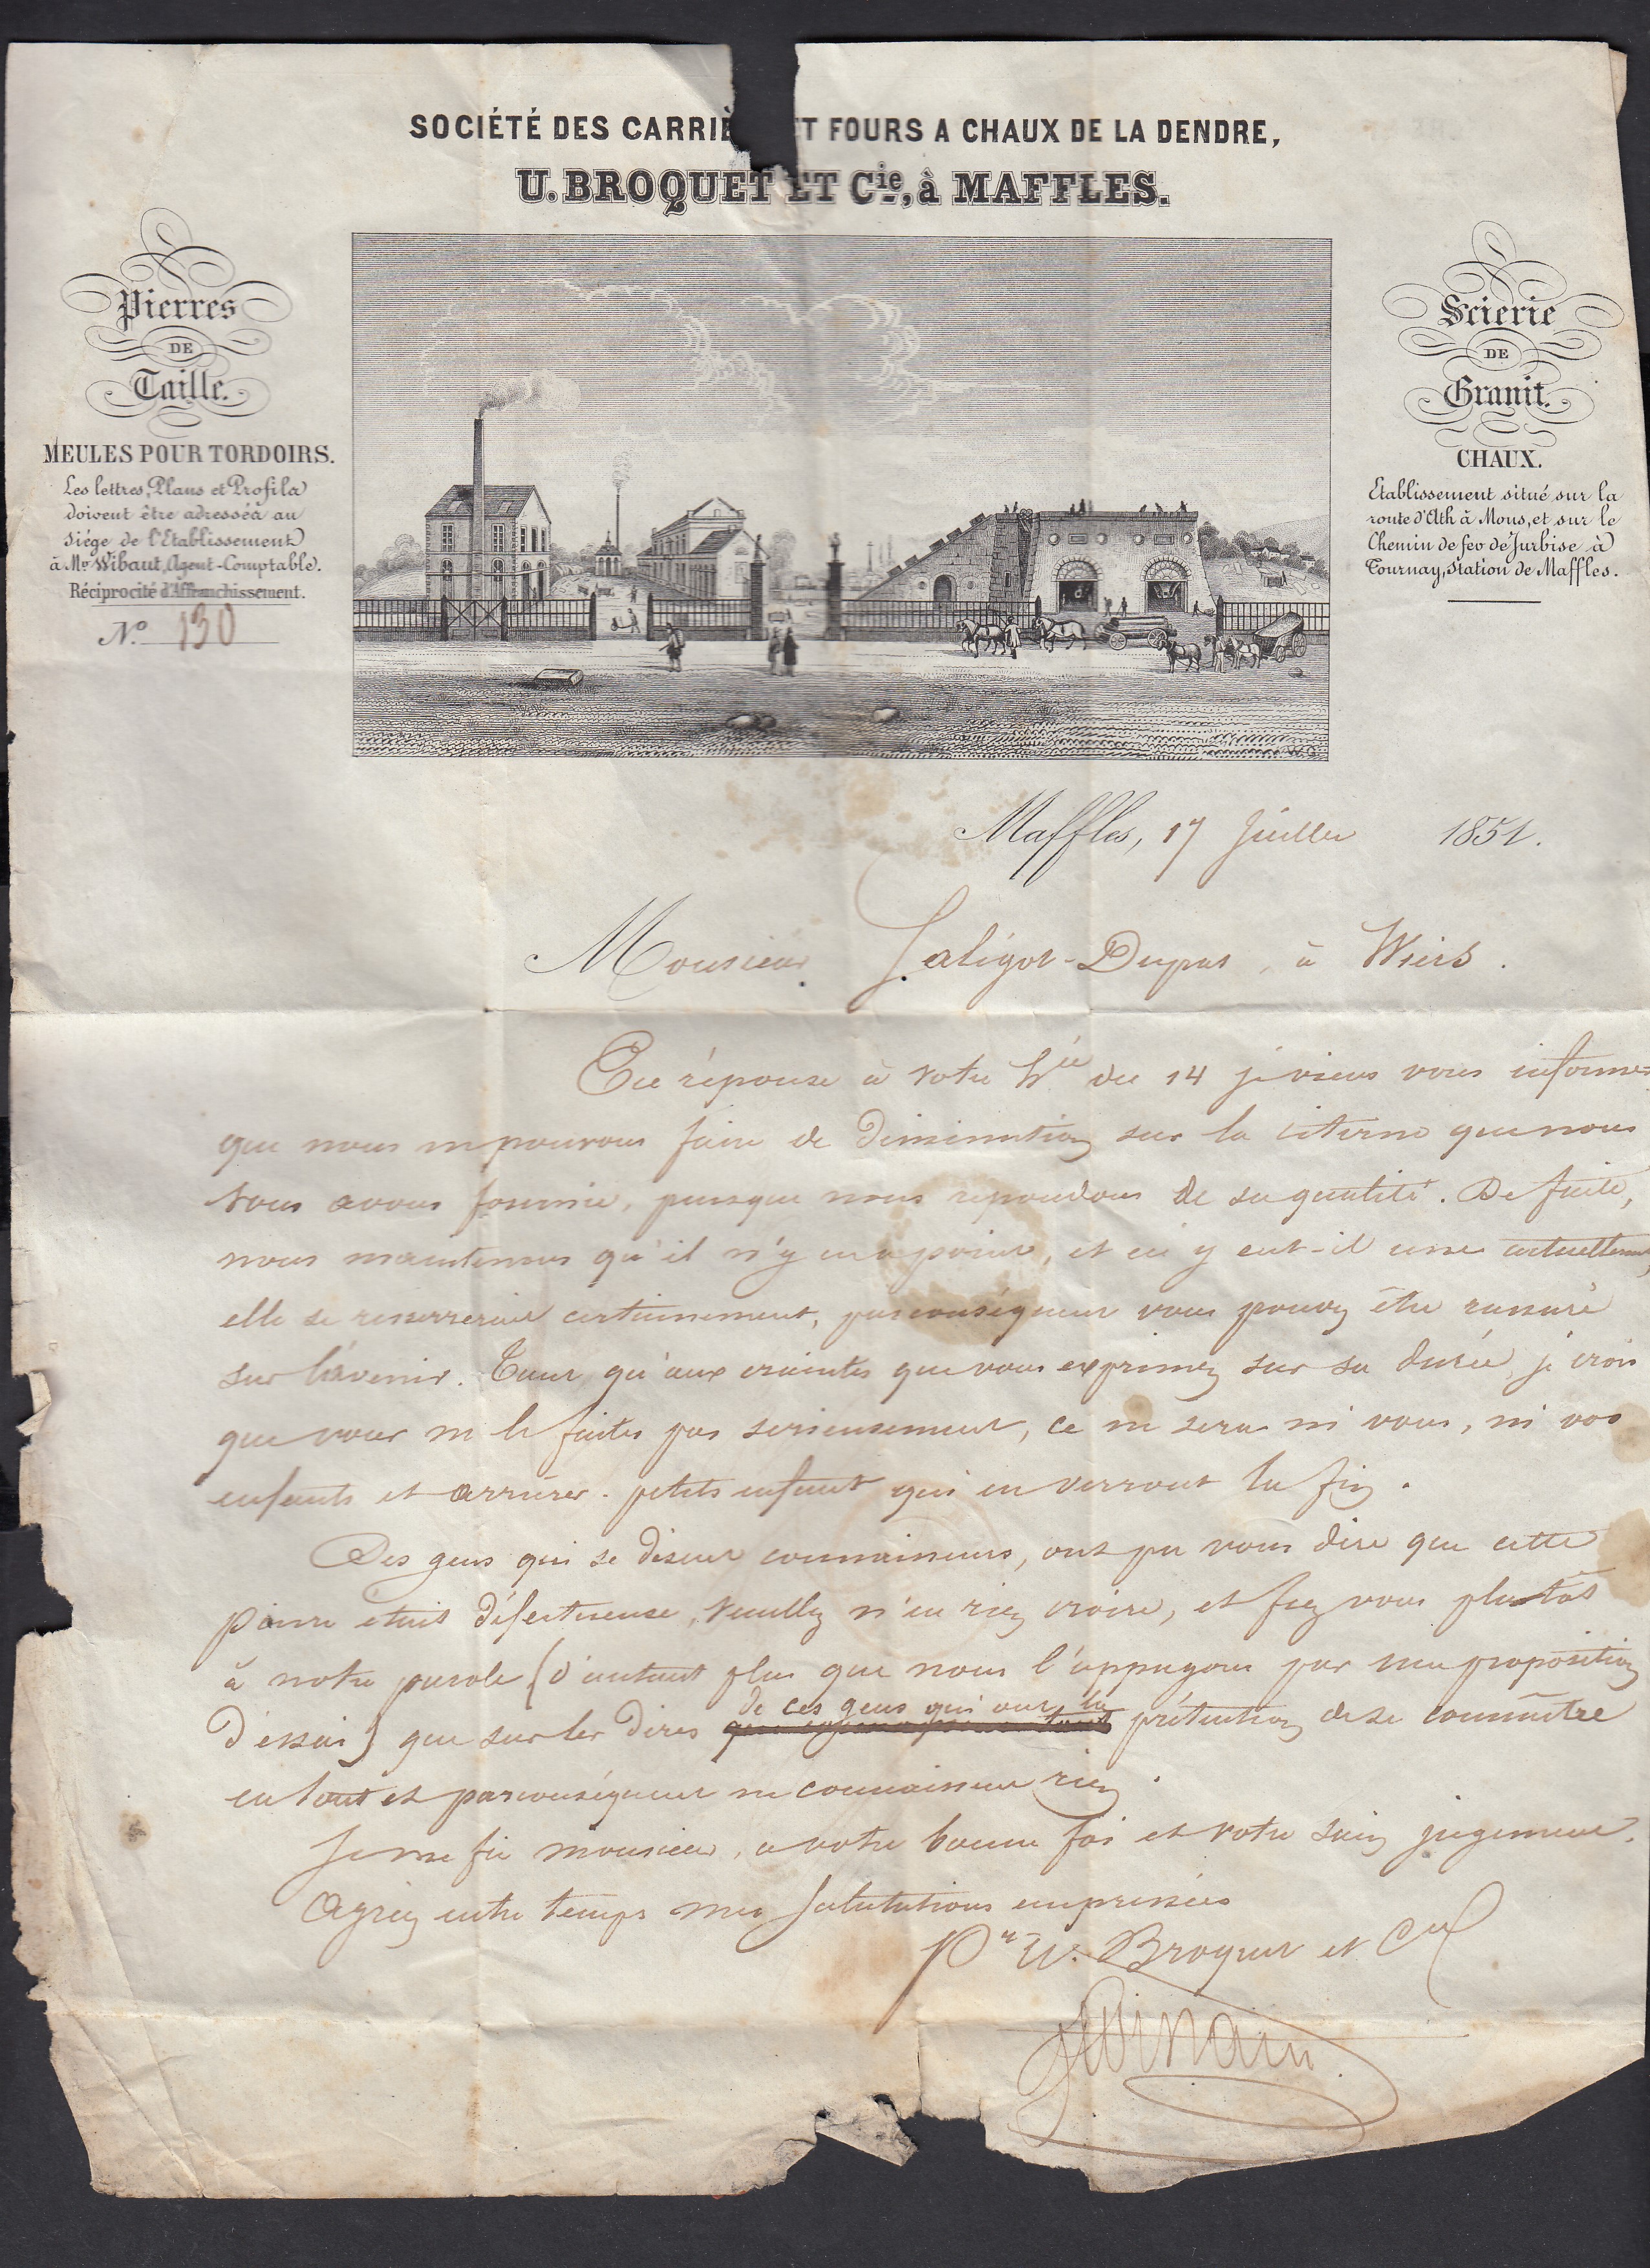 SOCIÉTÉ DES CARRIÈ ET FOURS A CHAUX DE LA DENDRE,
U. BROQUET ET Cie, à MAFFLES.
Pierres
DE
Taille.
MEULES POUR TORDOIRS.
Les lettres, Plans et Profils
doivent être adressés au
siége de l'Etablissement
à Mr Wibaut, Agent-Comptable.
Réciprocité d'Affranchissement.
No. 130
Scierie
DE
Granit.
CHAUX.
Etablissement situé sur la
route d'Ath à Mons, et sur le
Chemin de fer de Jurbise à
Tournay, station de Maffles.
W.G.
Maffles, 17 Juillet 1851.
Monsieur Saligot-Dupas, à Wiers.
En réponse à votre hrée du 14 je viens vous informer
que nous ne pouvons faire de diminution sur la citerne que nous
vous avons fournie, puisque nous repondons de sa qualité. De fuite,
nous maintenons qu'il n'y en a point, et en y eut-il une actuellement,
elle se resserrerait certainement, par conséquent vous pouvez être rassuré
sur l'avenir. Tant qu'aux craintes que vous exprimez sur sa durée, je crois
que vous ne le faites pas serieusement, ce ne sera ni vous, ni vos
enfants et arrières-petits enfant qui en verront la fin.
Des gens qui se disent connaisseurs, ont pu vous dire que cette
pierre etait défectueuse, veuillez n'en rien croire, et fiez vous plustôt
à notre parole (d'autant plus que nous l'appuyons par une proposition
d'essai) que sur les dires de ces gens qui ont la prétention de se connaître
en tout et par conséquent ne connaissent rien.
Je me fie monsieur, a votre bonne foi et votre sain jugement.
Agréez entre temps mes salutations empressées
Pr U. Broquet et Cie